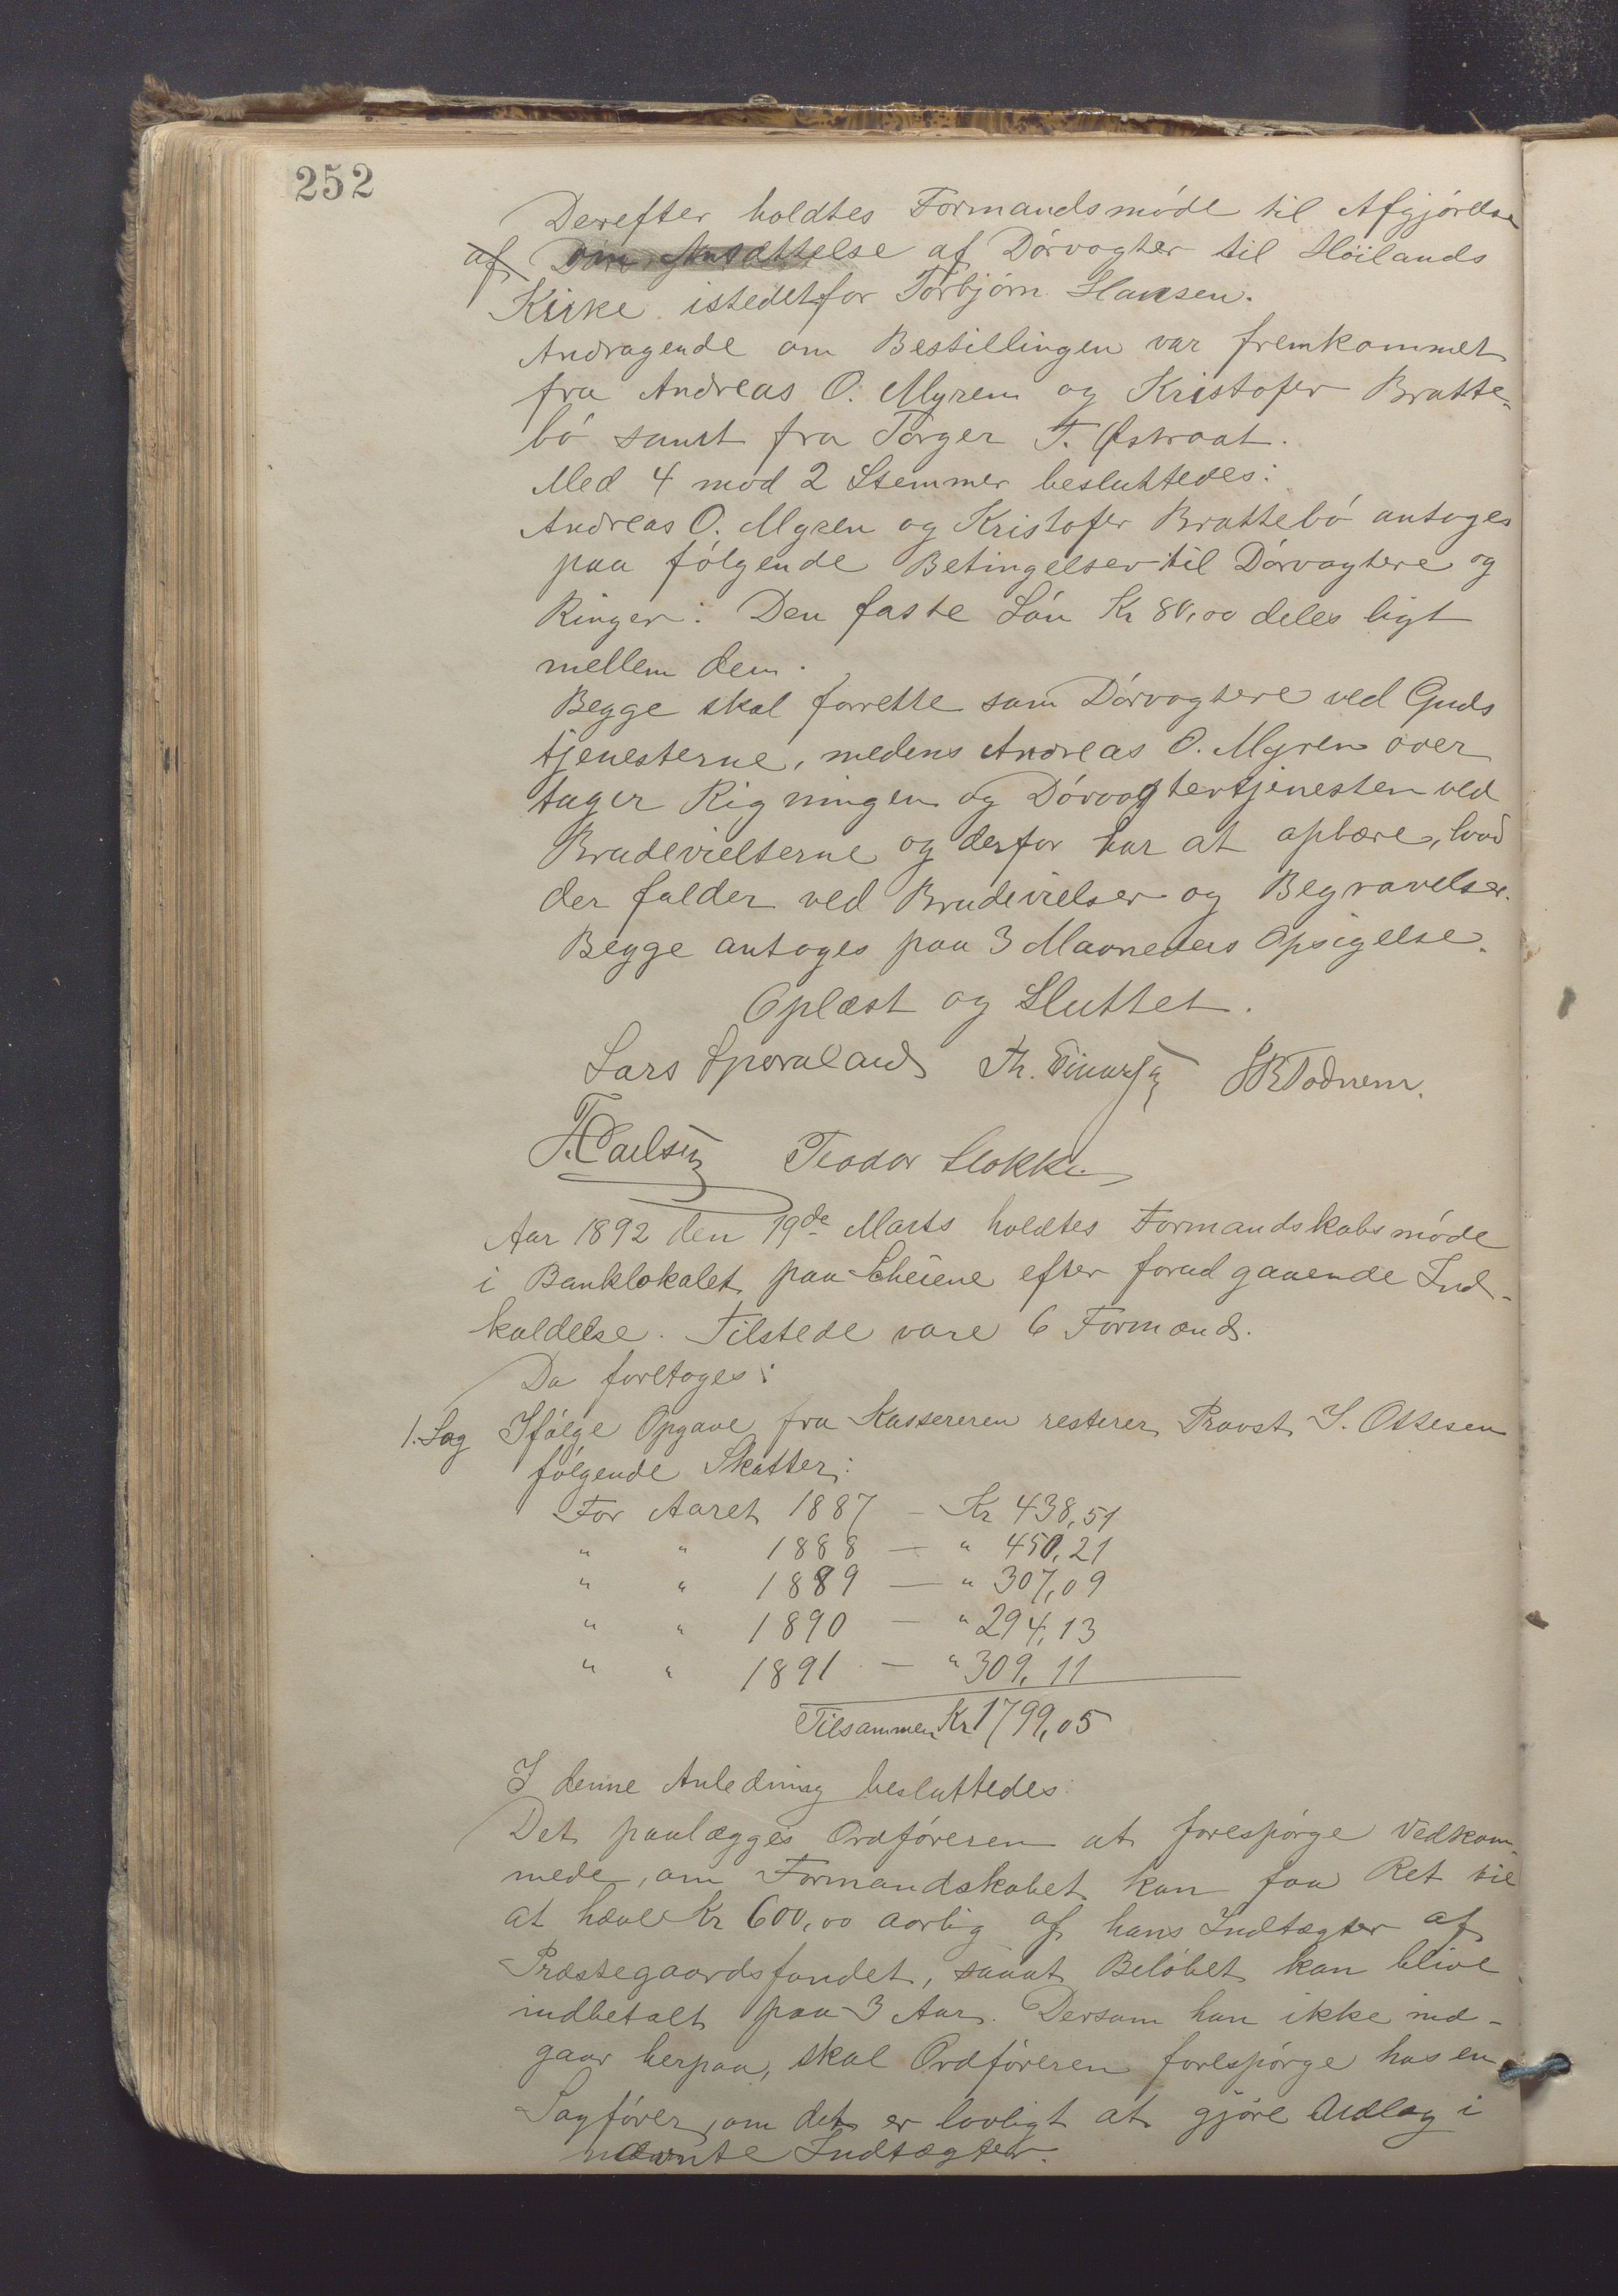 252
Derefter holdtes Formandsmöde til Afgjörelse
af om Ansættelse af Dörvogter til Höilands
Kirke istedetfor Torbjörn Hansen.
Andragende om Bestillingen var fremkommet
fra Andreas O. Myren og Kristofer Bratte-
bö samt fra Torger T. Østraat.
Med 4 mod 2 Stemmer besluttedes:
Andreas O. Myren og Kristofer Brattebö antoges
paa fölgende Betingelser til Dörvogtere og
Ringer: Den faste Lön Kr 80,00 deles ligt
mellem dem.
Begge skal forrette som Dörvogtere ved Guds
tjenesterne, medens Andreas O. Myren over
tager Rigningen og Dörvogtertjenesten ved
Brudevielserne og derfor har at opbære, hvad
der falder ved Brudevielser og Begravelser.
Begge antoges paa 3 Maaneders Opsigelse.
Oplæst og Sluttet.
Lars Sporaland Th. Einarsen Todnem.
T. Carlsen Teodor Stokke
Aar 1892 den 19de Marts holdtes Formandskabsmöde
i Banklokalet paa Scheiene efter forudgaaende Ind-
kaldelse. Tilstede vare 6 Formænd.
Da foretoges:
1. Sag Ifölge Opgave fra Kassereren resterer Provst I. Ottesen
fölgende Skatter:
For Aaret 1887 – Kr 438,51
" " 1888 — " 450,21
" " 1889 — " 307,09
" " 1890 – " 294,13
" " 1891 – " 309,11
Tilsammen Kr 1799,05
I denne Anledning besluttedes:
Det paalægges Ordföreren at forespörge Vedkom-
mede, om Formandskabet kan faa Ret til
at hæve Kr 600,00 aarlig af hans Indtægter af
Præstegaardsfondet, saaat Belöbet kan blive
indbetalt paa 3 Aar. Dersom han ikke ind-
gaar herpaa, skal Ordföreren forespörge hos en
Sagförer, om det er lovligt at gjöre Udlæg i
nævnte Indtægter.